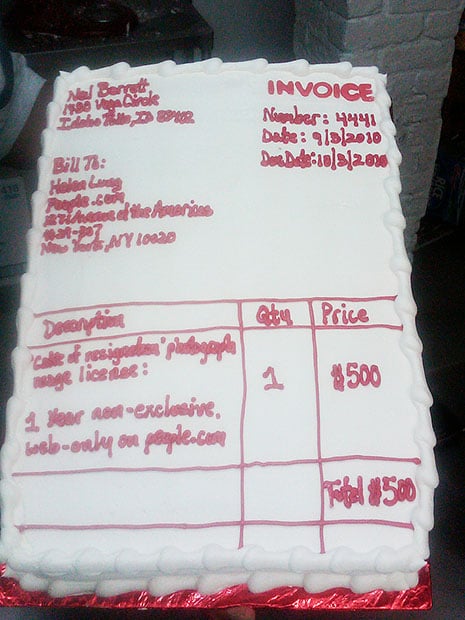 Neil Berrett
1488 Vega Circle
Idaho Falls, ID 83402
INVOICE
Number: 4441
Date: 9/3/2010
Due Date: 10/3/2010
Bill To:
Helen
People.com
of the Americas
New York, NY 10020
Description Qty Price
"Cake of resignation" photograph
usage license: 1 $500
1 Year non-exclusive,
web-only on people.com
Total $500